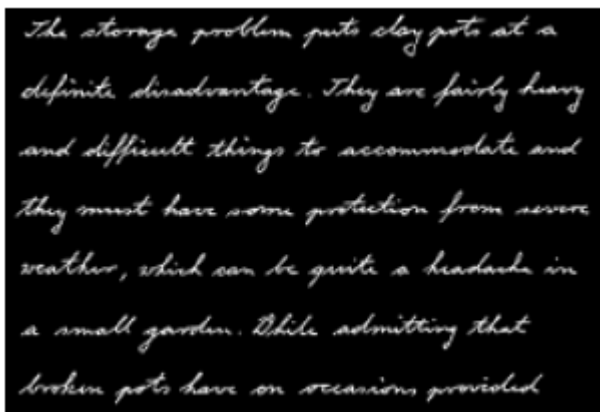 The storage problem puts clay pots at a
definite disadvantage. They are fairly heavy
and difficult things to accommodate and
they must have some protection from severe
weather, which can be quite a headache in
a small garden. While admitting that
broken pots have on occasions provided